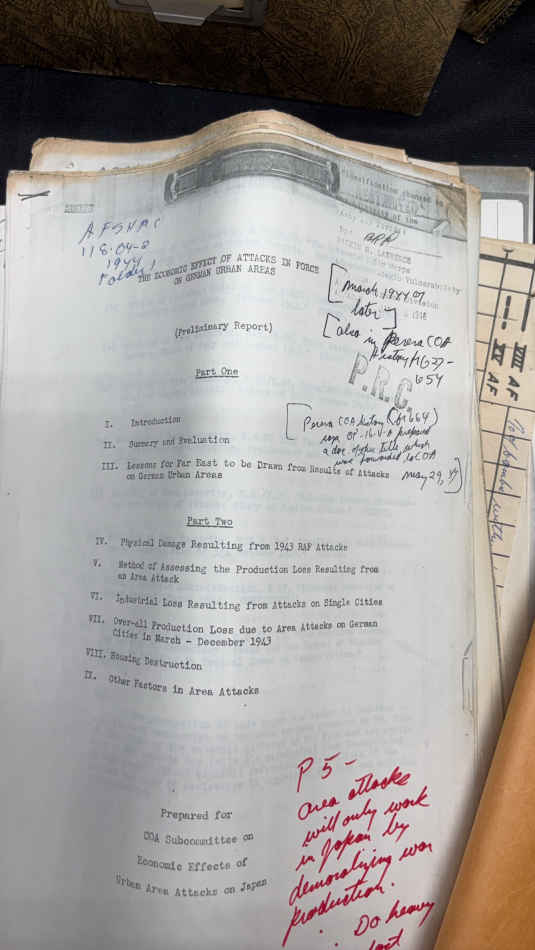 SECRET
Classification changed to
RESTRICTED
By:
PATRICK H. LAWRENCE
Vulnerability
Division
AFSHRC
118.04-2
1944
Folder 1
THE ECONOMIC EFFECT OF ATTACKS IN FORCE
ON GERMAN URBAN AREAS
[March 1944 or
later]
[also in Perera COA
History
654
P.R.C.
(Preliminary Report)
Part One
[Perera COA history
says OP-16-V-A prepared
a doc of this title which
was forwarded to COA
May 29, 44]
I. Introduction
II. Summary and Evaluation
III. Lessons for Far East to be Drawn from Results of Attacks
on German Urban Areas
Part Two
IV. Physical Damage Resulting from 1943 RAF Attacks
V. Method of Assessing the Production Loss Resulting from
an Area Attack
VI. Industrial Loss Resulting from Attacks on Single Cities
VII. Over-all Production Loss due to Area Attacks on German
Cities in March - December 1943
VIII. Housing Destruction
IX. Other Factors in Area Attacks
Prepared for
COA Subcommittee on
Economic Effects of
Urban Area Attacks on Japan
P 5 -
area attacks
will only work
in Japan by
demoralizing war
production.
Do heavy
VIII AF
XV AF